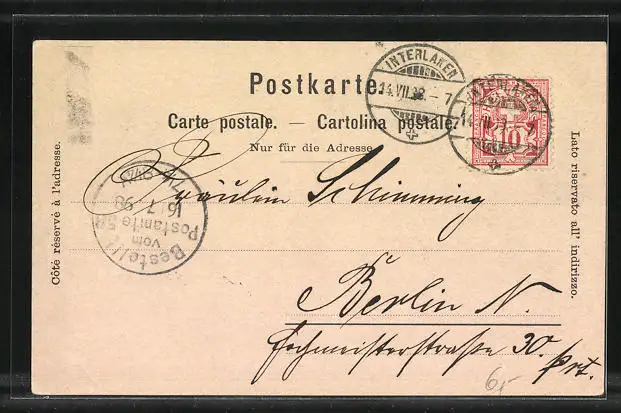 Postkarte.
Carte postale. — Cartolina postale.
Nur für die Adresse.
INTERLAKEN
14.VII.98.–7
INTERLAKEN
14.VII.98.–7
10
Côté réservé à l'adresse.
Lato riservato all' indirizzo.
Bestellt
vom
Postamte 58
16/7 98
Fräulein Schimming
Berlin N.
Hochmeisterstraße 30. Prt.
6,-